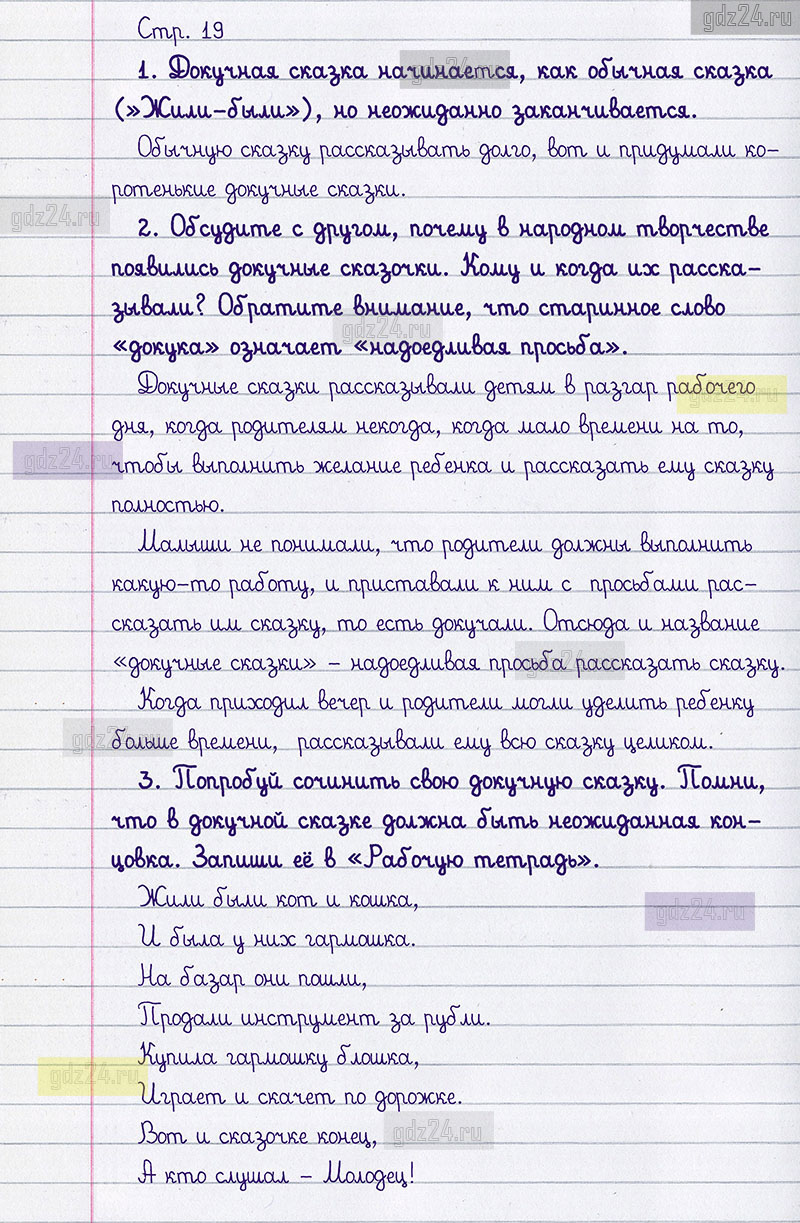 gdz24.ru
Стр. 19
1. Докучная сказка начинается, как обычная сказка
(»Жили-были»), но неожиданно заканчивается.
gdz24.ru
Обычную сказку рассказывать долго, вот и придумали ко-
ротенькие докучные сказки.
gdz24.ru
2. Обсудите с другом, почему в народном творчестве
появились докучные сказочки. Кому и когда их расска-
зывали? Обратите внимание, что старинное слово
gdz24.ru
«докука» означает «надоедливая просьба».
Докучные сказки рассказывали детям в разгар рабочего
gdz24.ru
дня, когда родителям некогда, когда мало времени на то,
gdz24.ru
чтобы выполнить желание ребенка и рассказать ему сказку
полностью.
Малыши не понимали, что родители должны выполнить
какую-то работу, и приставали к ним с просьбами рас-
сказать им сказку, то есть докучали. Отсюда и название
«докучные сказки» – надоедливая просьба рассказать сказку.
gdz24.ru
Когда приходил вечер и родители могли уделить ребенку
больше времени, рассказывали ему всю сказку целиком.
gdz24.ru
3. Попробуй сочинить свою докучную сказку. Помни,
что в докучной сказке должна быть неожиданная кон-
цовка. Запиши её в «Рабочую тетрадь».
Жили были кот и кошка,
gdz24.ru
И была у них гармошка.
На базар они пошли,
Продали инструмент за рубли.
Купила гармошку блошка,
gdz24.ru
Играет и скачет по дорожке.
Вот и сказочке конец,
gdz24.ru
А кто слушал – Молодец!